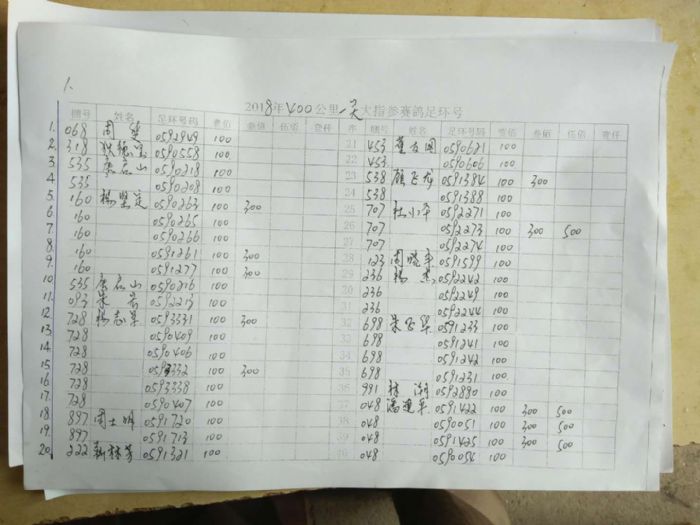 1.
2018年400公里一关大指参赛鸽足环号
棚号 姓名 足环号码 壹佰 叁佰 伍佰 壹仟 序 棚号 姓名 足环号码 壹佰 叁佰 伍佰 壹仟
1. 068 周 0592949 100 21 453 董友国 0590621 100
2. 318 0590558 100 22 453 0590606 100
3. 535 唐在山 0590218 100 23 538 顾飞龙 0591384 100 300
4. 535 0590208 100 24 538 0591388 100
5. 160 杨坚定 0590263 100 300 25 707 杜小华 0592271 100
6. 160 0590265 100 26 707 0592273 100 300 500
7. 160 0590266 100 27 707 0592274 100
8. 160 0591261 100 300 28 123 周晓军 0591599 100
9. 160 0591277 100 300 29 236 杨杰 0592242 100
10. 535 唐在山 0590216 100 30 236 0592249 100
11. 093 0592213 100 31 236 0592244 100
12. 728 杨志军 0593331 100 300 32 698 朱 0591233 100
13. 728 0590409 100 33 698 0591241 100
14. 728 0590406 100 34 698 0591242 100
15. 728 100 300 35 698 0591231 100
16. 728 0593338 100 36 991 林湖 0592880 100
17. 728 0590407 100 37 048 潘建平 0591422 100 300 500
18. 897 周士明 0591720 100 38 048 0590051 100 300 500
19. 897 0591713 100 39 048 0591425 100 300 500
20. 222 靳林芳 0591321 100 40 048 0590054 100